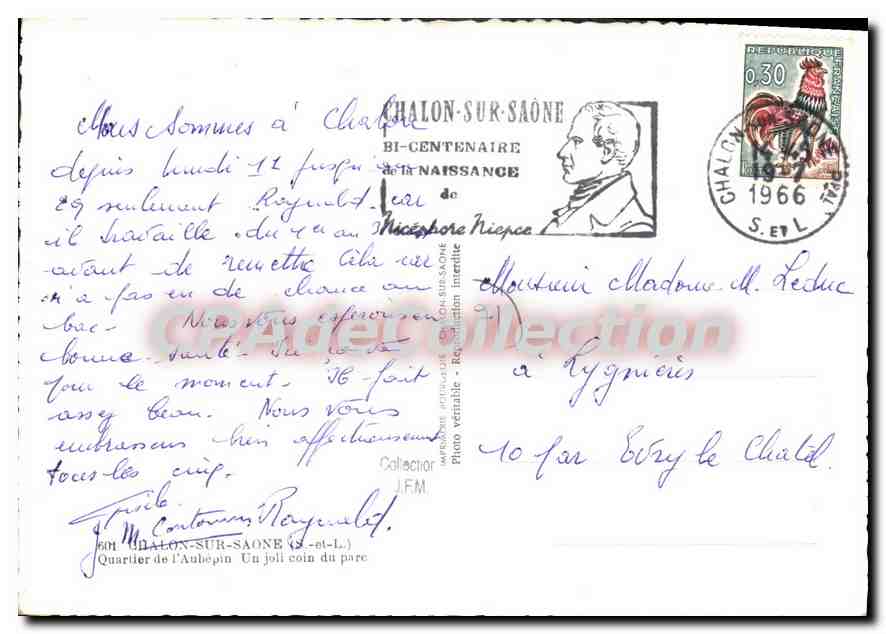 Nous sommes à Chalon
depuis lundi 11 jusqu'au
29 seulement Raynald car
il travaille du 1er au
avant de remettre cela car
n'a pas eu de chance au
bac. Nous vous espérons en
bonne santé. Ici
pour le moment. Il fait
assez beau. Nous vous
embrassons bien affectueusement
tous les cinq.
Gisèle
Raynald.
601 CHALON-SUR-SAONE (S.-et-L.)
Quartier de l'Aubépin Un joli coin du parc
CHALON-SUR-SAÔNE
BI-CENTENAIRE
de la NAISSANCE
de
Nicéphore Niepce
IMPRIMERIE BOURGEOIS CHALON-SUR-SAONE
Photo véritable - Reproduction interdite
Collection
J.F.M.
REPUBLIQUE FRANÇAISE
0,30
CHALON
1966
S. ET L.
Monsieur Madame M. Leduc
à Lygnières
10 par Evry le Chatel.
CPAdeCollection